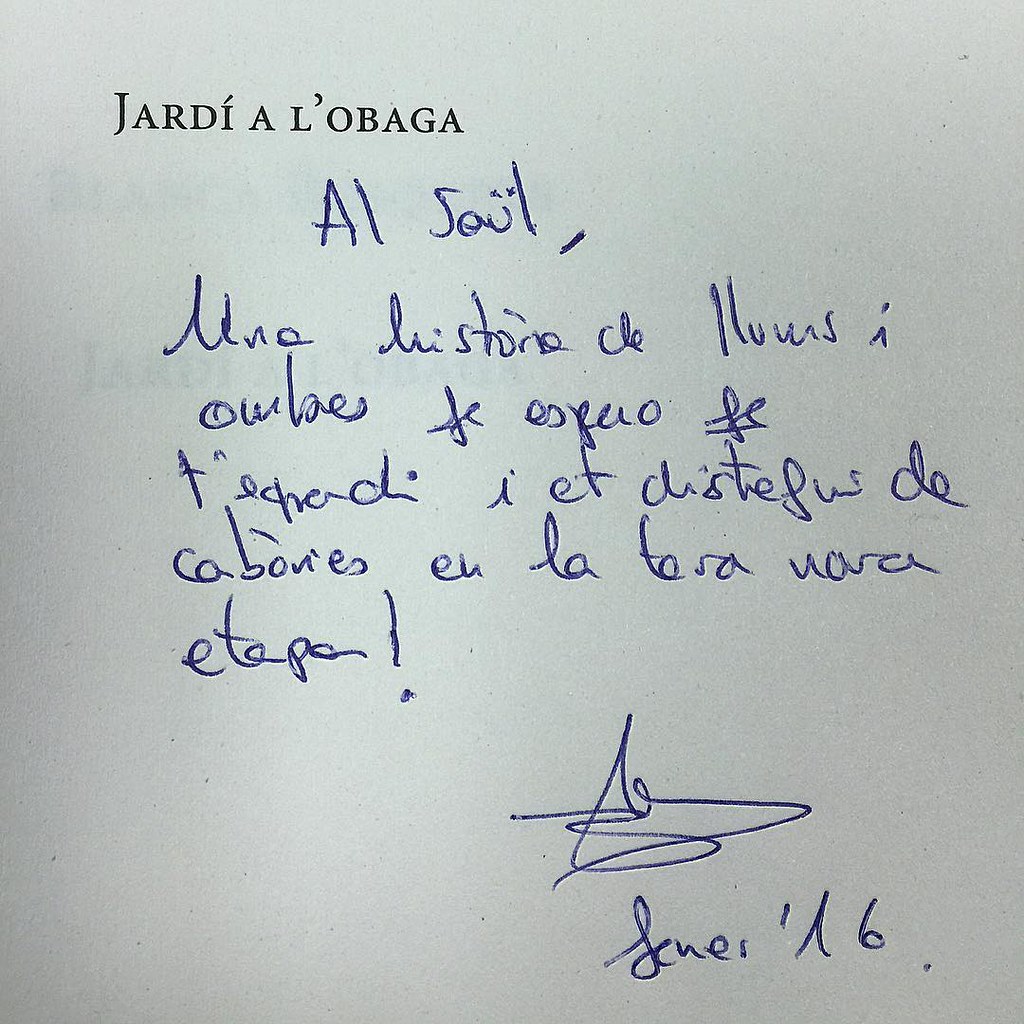 JARDÍ A L'OBAGA
Al Saül,
Una història de llums i
ombres que espero que
t'agradi i et distregui de
cabòries en la teva nova
etapa!
Gener '16.